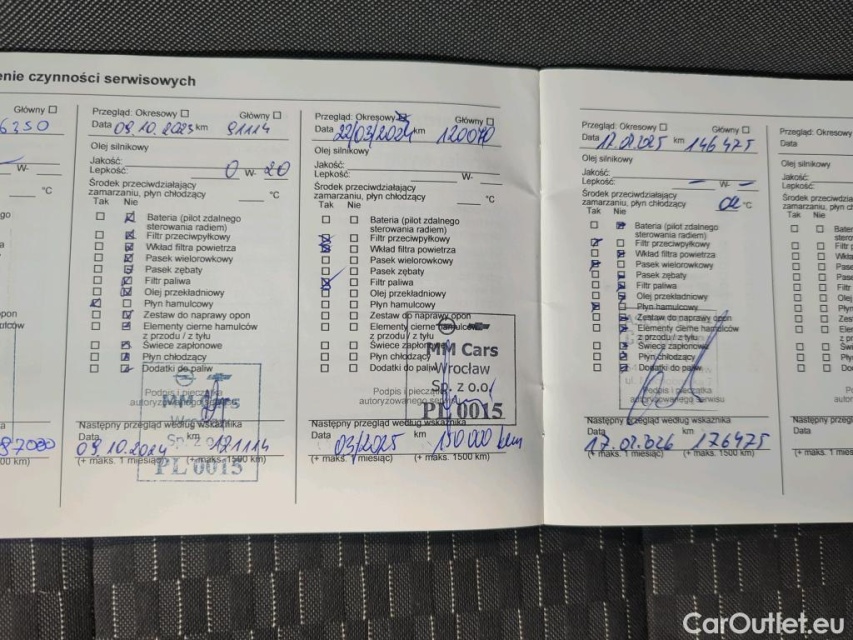 enie czynności serwisowych
Główny
6350
W-
°C
87000
00 km)
Przegląd: Okresowy Główny
Data 09.10.2023 km 91114
Olej silnikowy
Jakość:
Lepkość: 0 W- 20
Środek przeciwdziałający
zamarzaniu, płyn chłodzący °C
Tak Nie
Bateria (pilot zdalnego
sterowania radiem)
Filtr przeciwpyłkowy
Wkład filtra powietrza
Pasek wielorowkowy
Pasek zębaty
Filtr paliwa
Olej przekładniowy
Płyn hamulcowy
Zestaw do naprawy opon
Elementy cierne hamulców
z przodu / z tyłu
Świece zapłonowe
Płyn chłodzący
Dodatki do paliw
Podpis i pieczątka
autoryzowanego
MM Cars
Sp. z o.o.
PL 0015
Następny przegląd według wskaźnika
Data km
09.10.2024 121114
(+ maks. 1 miesiąc) (+ maks. 1500 km)
Przegląd: Okresowy Główny
Data 22/03/2024 km 120040
Olej silnikowy
Jakość:
Lepkość: W-
Środek przeciwdziałający
zamarzaniu, płyn chłodzący °C
Tak Nie
Bateria (pilot zdalnego
sterowania radiem)
Filtr przeciwpyłkowy
Wkład filtra powietrza
Pasek wielorowkowy
Pasek zębaty
Filtr paliwa
Olej przekładniowy
Płyn hamulcowy
Zestaw do naprawy opon
Elementy cierne hamulców
z przodu / z tyłu
Świece zapłonowe
Płyn chłodzący
Dodatki do paliw
Podpis i pieczątka
autoryzowanego
MM Cars
Wrocław
Sp. z o.o.
PL 0015
Następny przegląd według wskaźnika
Data 03/2025 km 150 000 km
(+ maks. 1 miesiąc) (+ maks. 1500 km)
Przegląd: Okresowy Główny
Data 17.02.2025 km 146475
Olej silnikowy
Jakość:
Lepkość: – W- –
Środek przeciwdziałający
zamarzaniu, płyn chłodzący °C
Tak Nie
Bateria (pilot zdalnego
sterowania radiem)
Filtr przeciwpyłkowy
Wkład filtra powietrza
Pasek wielorowkowy
Pasek zębaty
Filtr paliwa
Olej przekładniowy
Płyn hamulcowy
Zestaw do naprawy opon
Elementy cierne hamulców
z przodu / z tyłu
Świece zapłonowe
Płyn chłodzący
Dodatki do paliw
Podpis i pieczątka
autoryzowanego serwisu
Następny przegląd według wskaźnika
Data km
17.02.2026 176475
(+ maks. 1 miesiąc) (+ maks. 1500 km)
Przegląd: Okresowy
Data
Olej silnikowy
Jakość:
Lepkość:
Środek przeciwdziałający
zamarzaniu, płyn chłodzący
Tak Nie
Następny przegląd
Data
(+ maks. 1 miesiąc)
CarOutlet.eu